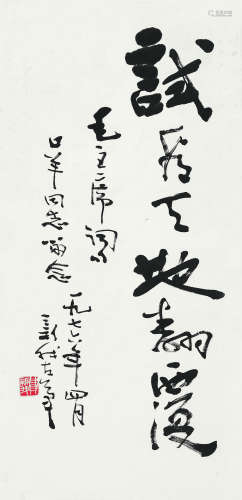 試看天地翻覆
毛主席詞
同志留念
一九七六年四月
新我左筆